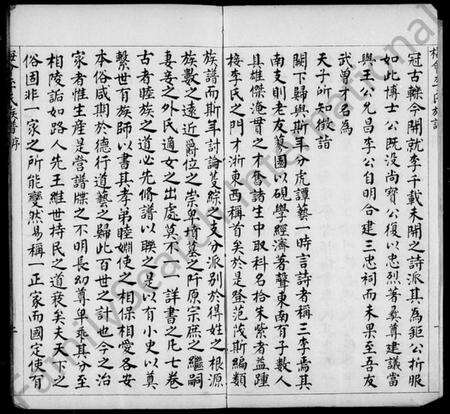 冠古轢今開就李千載未開之詩派其為鉅公折服
如此博士公既沒尚寶公復以忠烈著義尊建議當
與王公允昌李公自明合建三忠祠而未果至吾友
武曽才名為
天子所知徵詣
闕下歸與斯年分虎譚藝一時言詩者稱三李焉其
南支則老友蒙圃以硯學經濟著聲東南有子數人
其雄傑淹貫之才奮諸生中取科名拾朱紫者益踵
接李氏之門才浙東西稱首矣於是登范陵斯編類
族譜而斯年討論蒐綜之支分派別於得姓之根源
族數之遠近爵位之崇卑墳墓之阡原宗庶之繼嗣
妻妾之外氏適女之出處莫不一一詳書之凡七巻
古者睦族之道必先脩譜以聨之是以有小史以奠
繫世百族師以書其孝弟睦婣使之相保相愛各安
本俗咸期於德行道藝之歸此百世之計也今之治
家者惟生産是營譜牒之不明長幼尊卑失其分至
相陵詬如路人先王維世持民之道衰矣夫天下之
俗固非一家之所能變然易稱一正家而國定使有
FamilySearch International